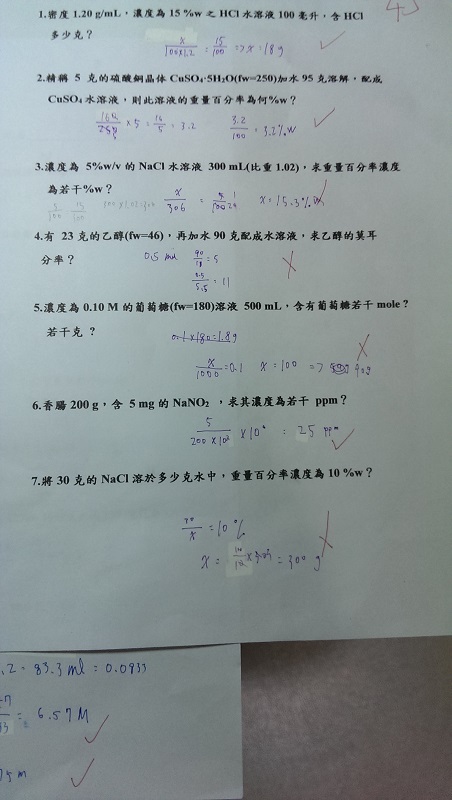 1.密度 1.20 g/mL，濃度為 15 %w 之 HCl 水溶液 100 毫升，含 HCl
多少克？
x/100×1.2 = 15/100 => x = 18 g
2.精稱 5 克的硫酸銅晶体 CuSO₄·5H₂O(fw=250)加水 95 克溶解，配成
CuSO₄ 水溶液，則此溶液的重量百分率為何%w？
160/250 ×5 = 16/5 = 3.2 3.2/100 = 3.2%w
3.濃度為 5%w/v 的 NaCl 水溶液 300 mL(比重 1.02)，求重量百分率濃度
為若干%w？
x/306 = x = 15.3%w
4.有 23 克的乙醇(fw=46)，再加水 90 克配成水溶液，求乙醇的莫耳
分率？
0.5 90/18 = 5
0.5/5.5 = 11
5.濃度為 0.10 M 的葡萄糖(fw=180)溶液 500 mL，含有葡萄糖若干 mole？
若干克 ？
0.1×180=1.8g
x/1000 = 0.1 x = 100 =>
6.香腸 200 g，含 5 mg 的 NaNO₂ ，求其濃度為若干 ppm？
5/200×10³ = 25 ppm
7.將 30 克的 NaCl 溶於多少克水中，重量百分率濃度為 10 %w？
30/x = 10 %
x = = 300 g
.2 = 83.3 ml = 0.0833
= 6.57 M
75 m